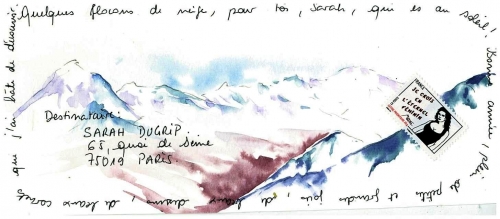 Quelques flocons de neige, pour toi, Sarah, qui es au soleil! Bonne année, plein
de petites et grandes joies, de beaux dessins, de beaux carnets
que j'ai hâte de découvrir.
Destinataire:
SARAH DUGRIP
68, quai de Seine
75019 PARIS
JE CROIS
EN
L'ETERNEL
FÉMININ